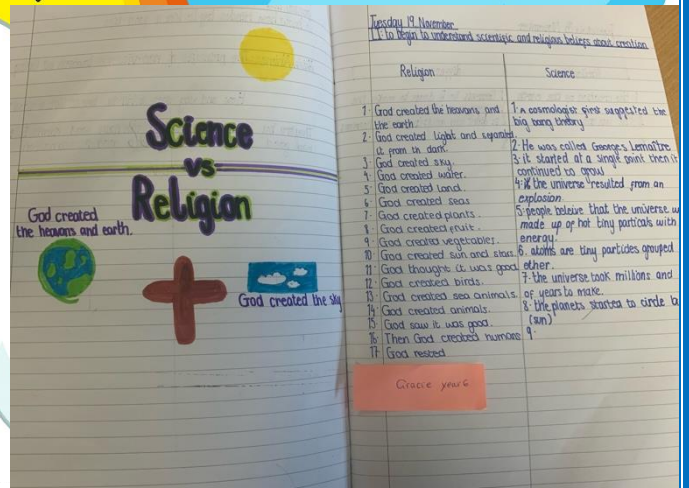 Science
vs
Religion
God created
the heavans and earth.
God created the sky
Tuesday 19 November
LI: to begin to understand scientific and religious beliefs about creation
Religion
1 God created the heavans and
the earth
2. God created light and separated
it from th dark.
3. God created sky.
4. God created water.
5. God created land.
6 God created seas
7. God created plants.
8. God created fruit.
9. God created vegetables.
10 God created sun and stars.
11 God thought it was good
12 God created birds.
13 God created sea animals.
14 God created animals.
15 God saw it was good.
16 Then God created humans
17 God rested
Science
1. A cosmologist first suggested the
big bang theory
2. He was called Georges Lemaître
3. it started at a single point then it
continued to grow
4. the universe resulted from an
explosion.
5. people beleive that the universe w
made up of hot tiny particals with
energy.
6. atoms are tiny particles grouped
ether.
7. the universe took millions and
of years to make.
8. the planets started to circle
(sun)
9.
Gracie year 6